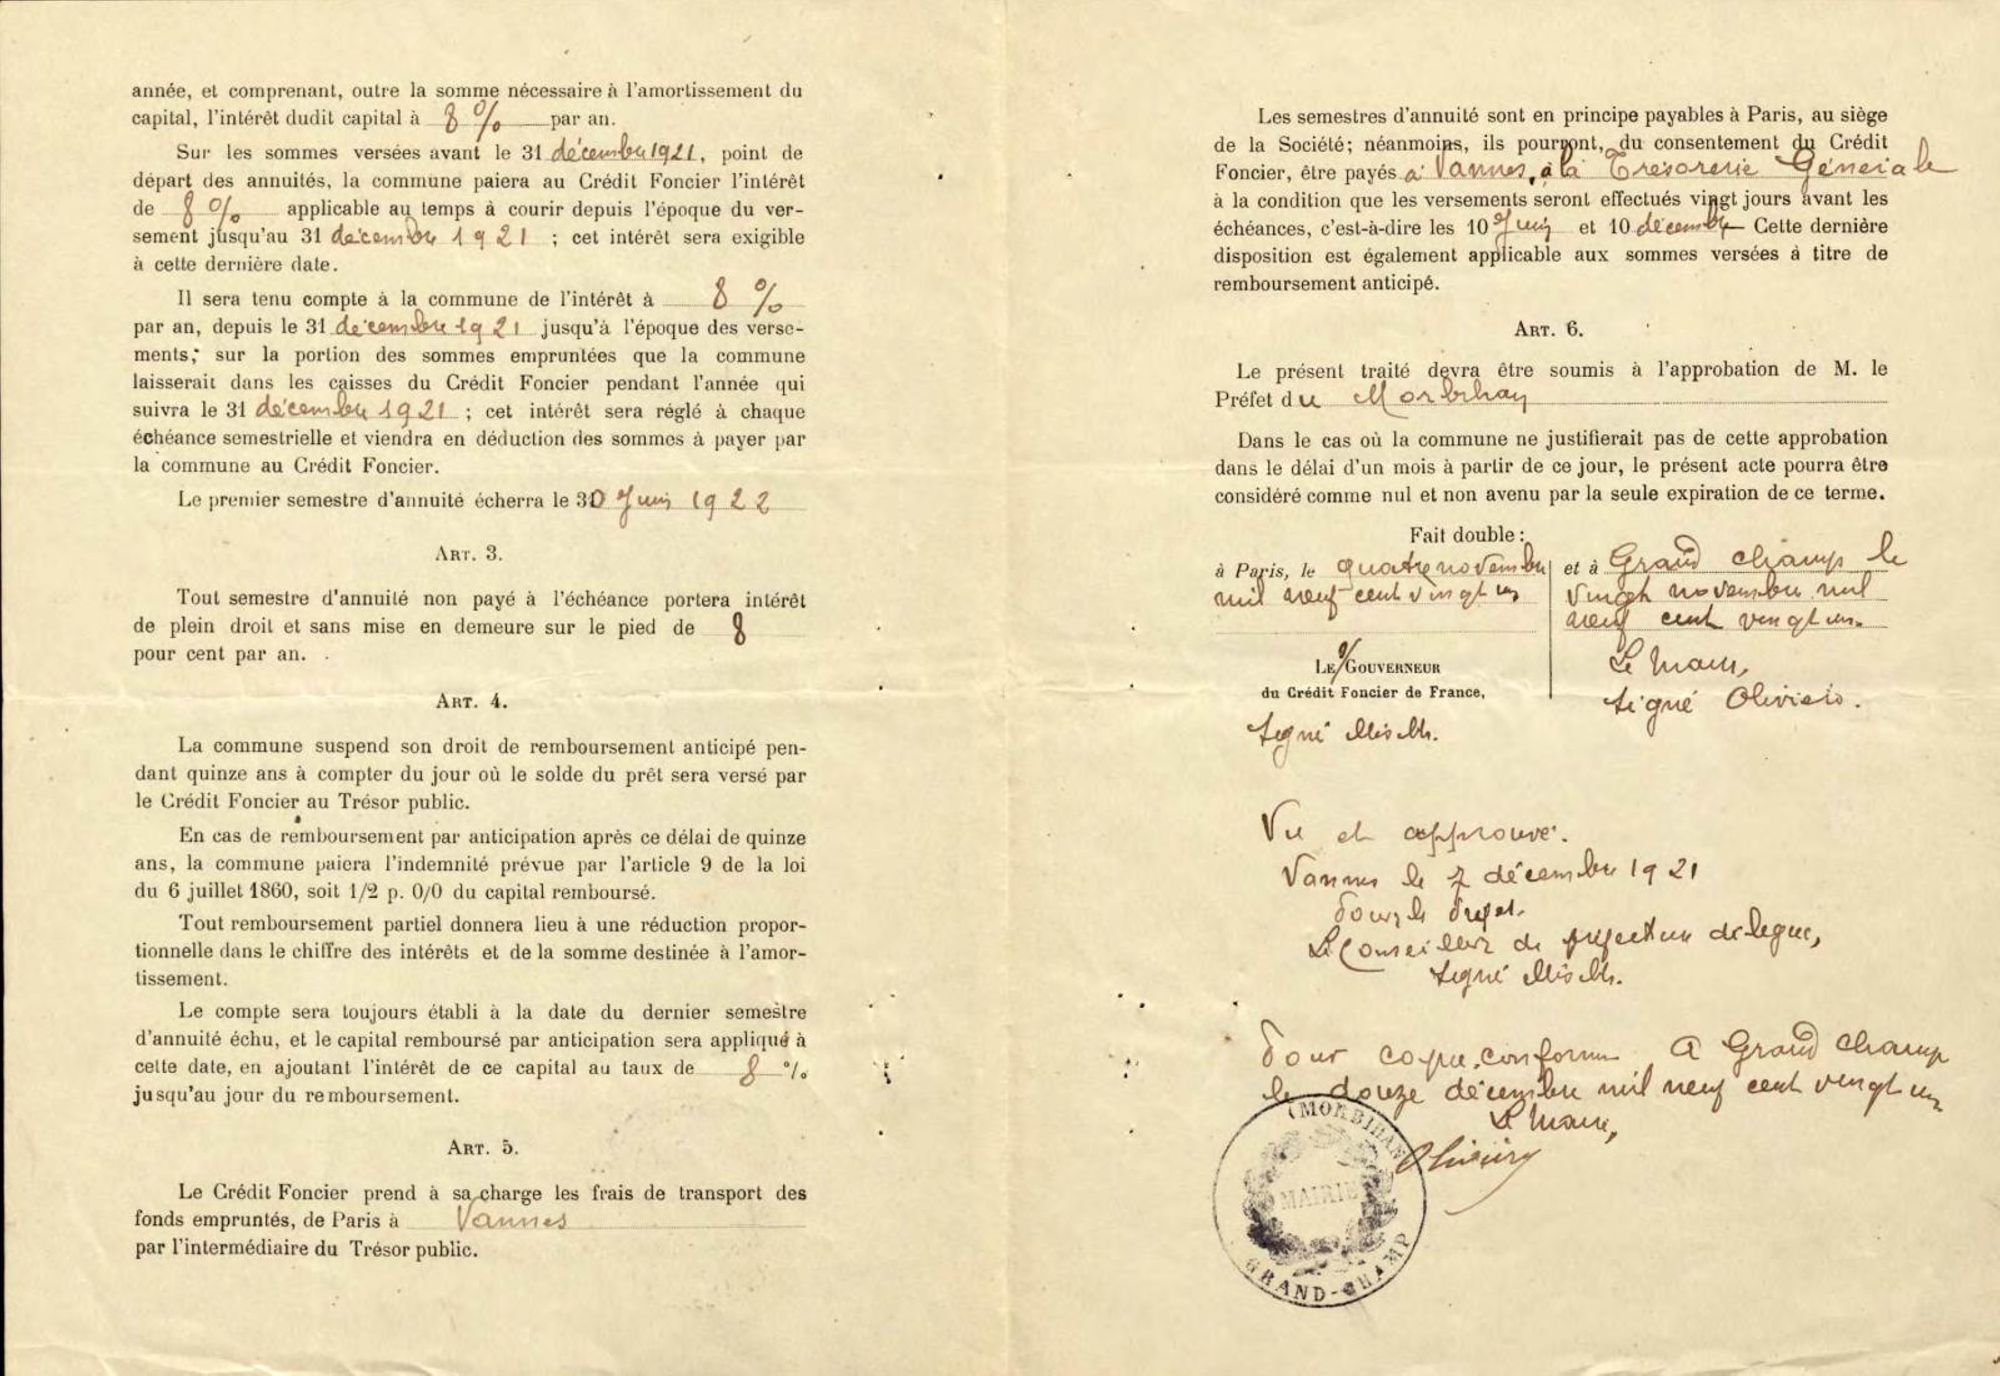 année, et comprenant, outre la somme nécessaire à l'amortissement du
capital, l'intérêt dudit capital à 8 % par an.
Sur les sommes versées avant le 31 décembre 1921, point de
départ des annuités, la commune paiera au Crédit Foncier l'intérêt
de 8 % applicable au temps à courir depuis l'époque du ver-
sement jusqu'au 31 décembre 1921 ; cet intérêt sera exigible
à cette dernière date.
Il sera tenu compte à la commune de l'intérêt à 8 %
par an, depuis le 31 décembre 1921 jusqu'à l'époque des verse-
ments, sur la portion des sommes empruntées que la commune
laisserait dans les caisses du Crédit Foncier pendant l'année qui
suivra le 31 décembre 1921 ; cet intérêt sera réglé à chaque
échéance semestrielle et viendra en déduction des sommes à payer par
la commune au Crédit Foncier.
Le premier semestre d'annuité écherra le 30 Juin 1922
ART. 3.
Tout semestre d'annuité non payé à l'échéance portera intérêt
de plein droit et sans mise en demeure sur le pied de 8
pour cent par an.
ART. 4.
La commune suspend son droit de remboursement anticipé pen-
dant quinze ans à compter du jour où le solde du prêt sera versé par
le Crédit Foncier au Trésor public.
En cas de remboursement par anticipation après ce délai de quinze
ans, la commune paiera l'indemnité prévue par l'article 9 de la loi
du 6 juillet 1860, soit 1/2 p. 0/0 du capital remboursé.
Tout remboursement partiel donnera lieu à une réduction propor-
tionnelle dans le chiffre des intérêts et de la somme destinée à l'amor-
tissement.
Le compte sera toujours établi à la date du dernier semestre
d'annuité échu, et le capital remboursé par anticipation sera appliqué à
cette date, en ajoutant l'intérêt de ce capital au taux de 8 %
jusqu'au jour du remboursement.
ART. 5.
Le Crédit Foncier prend à sa charge les frais de transport des
fonds empruntés, de Paris à Vannes
par l'intermédiaire du Trésor public.
Les semestres d'annuité sont en principe payables à Paris, au siège
de la Société; néanmoins, ils pourront, du consentement du Crédit
Foncier, être payés à Vannes, à la Trésorerie Générale
à la condition que les versements seront effectués vingt jours avant les
échéances, c'est-à-dire les 10 Juin et 10 décembre Cette dernière
disposition est également applicable aux sommes versées à titre de
remboursement anticipé.
ART. 6.
Le présent traité devra être soumis à l'approbation de M. le
Préfet du Morbihan
Dans le cas où la commune ne justifierait pas de cette approbation
dans le délai d'un mois à partir de ce jour, le présent acte pourra être
considéré comme nul et non avenu par la seule expiration de ce terme.
Fait double :
à Paris, le quatre novembre
mil neuf cent vingt un
et à Grand champ le
vingt novembre mil
neuf cent vingt un.
LE GOUVERNEUR
du Crédit Foncier de France,
signé
Le Maire,
signé Oliviero.
Vu et approuvé.
Vannes le 7 décembre 1921
Pour le Préfet.
Le Conseiller de préfecture délégué,
signé
Pour copie conforme A Grand champ
le douze décembre mil neuf cent vingt un
Le Maire,
(MORBIHAN)
MAIRIE
GRAND-CHAMP